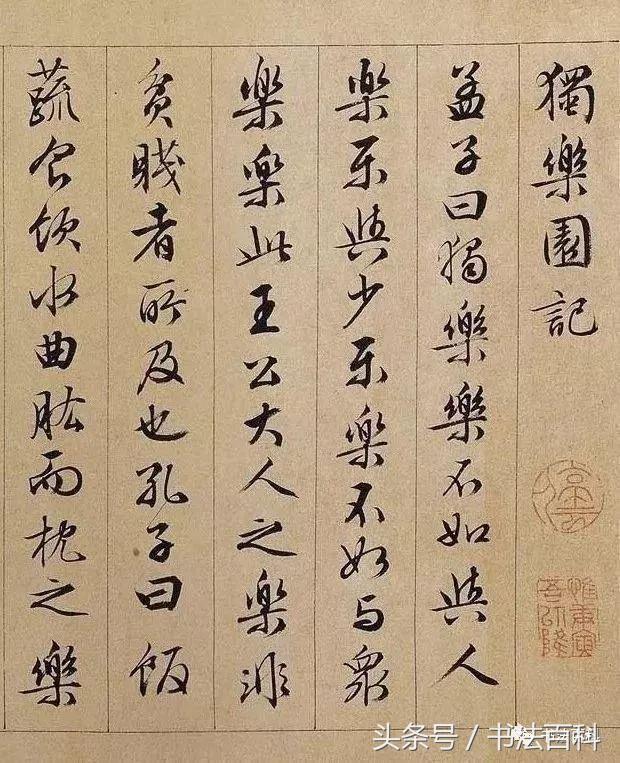 獨樂園記
孟子曰獨樂樂不如與人
樂樂與少樂樂不如与衆
樂樂此王公大人之樂非
貧賤者所及也孔子曰飯
蔬食飲水曲肱而枕之樂
惟庚寅吾以降
头条号／书法百科